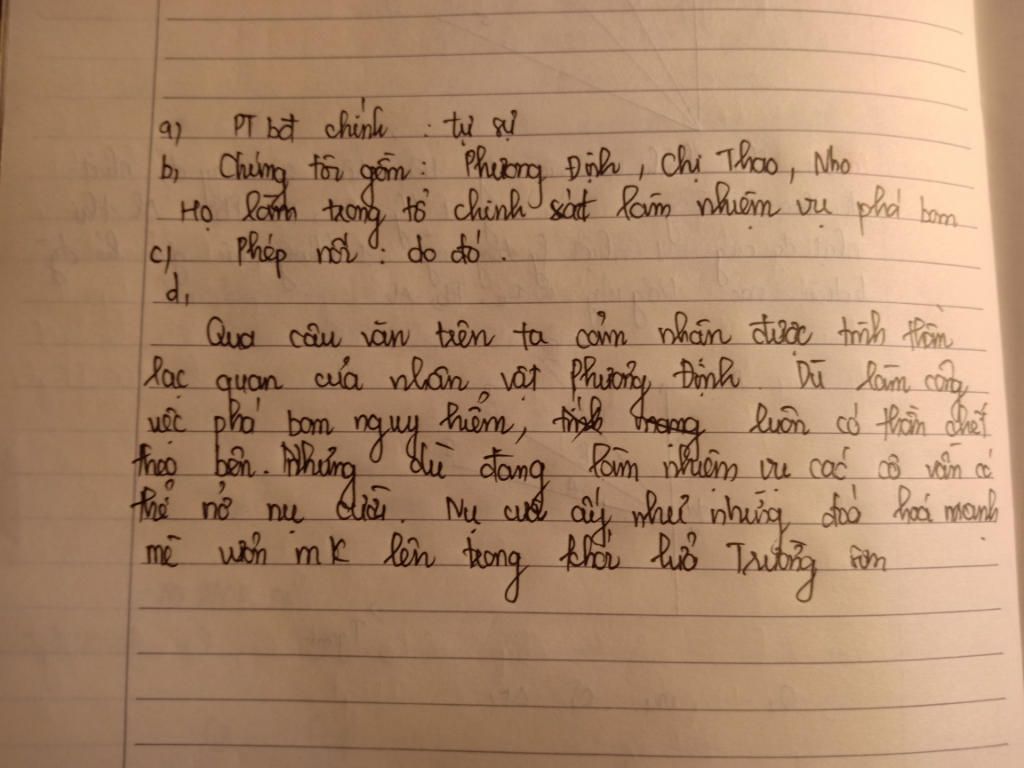 a) PT bđt chính : tự sự
b, Chúng tôi gồm : Phương Định, Chị Thao, Nho
Họ làm trong tổ chinh sát làm nhiệm vụ phá bom
c) Phép nối : do đó .
d,
Qua câu văn trên ta cảm nhận được tinh thần
lạc quan của nhân vật Phương Định. Dù làm công
việc phá bom nguy hiểm, luôn có thần chết
theo bên. Nhưng dù đang làm nhiệm vụ các cô vẫn có
thể nở nụ cười. Nụ cười ấy như những đoá hoá mạnh
mẽ vươn mk lên trong khói lửa Trường sơn